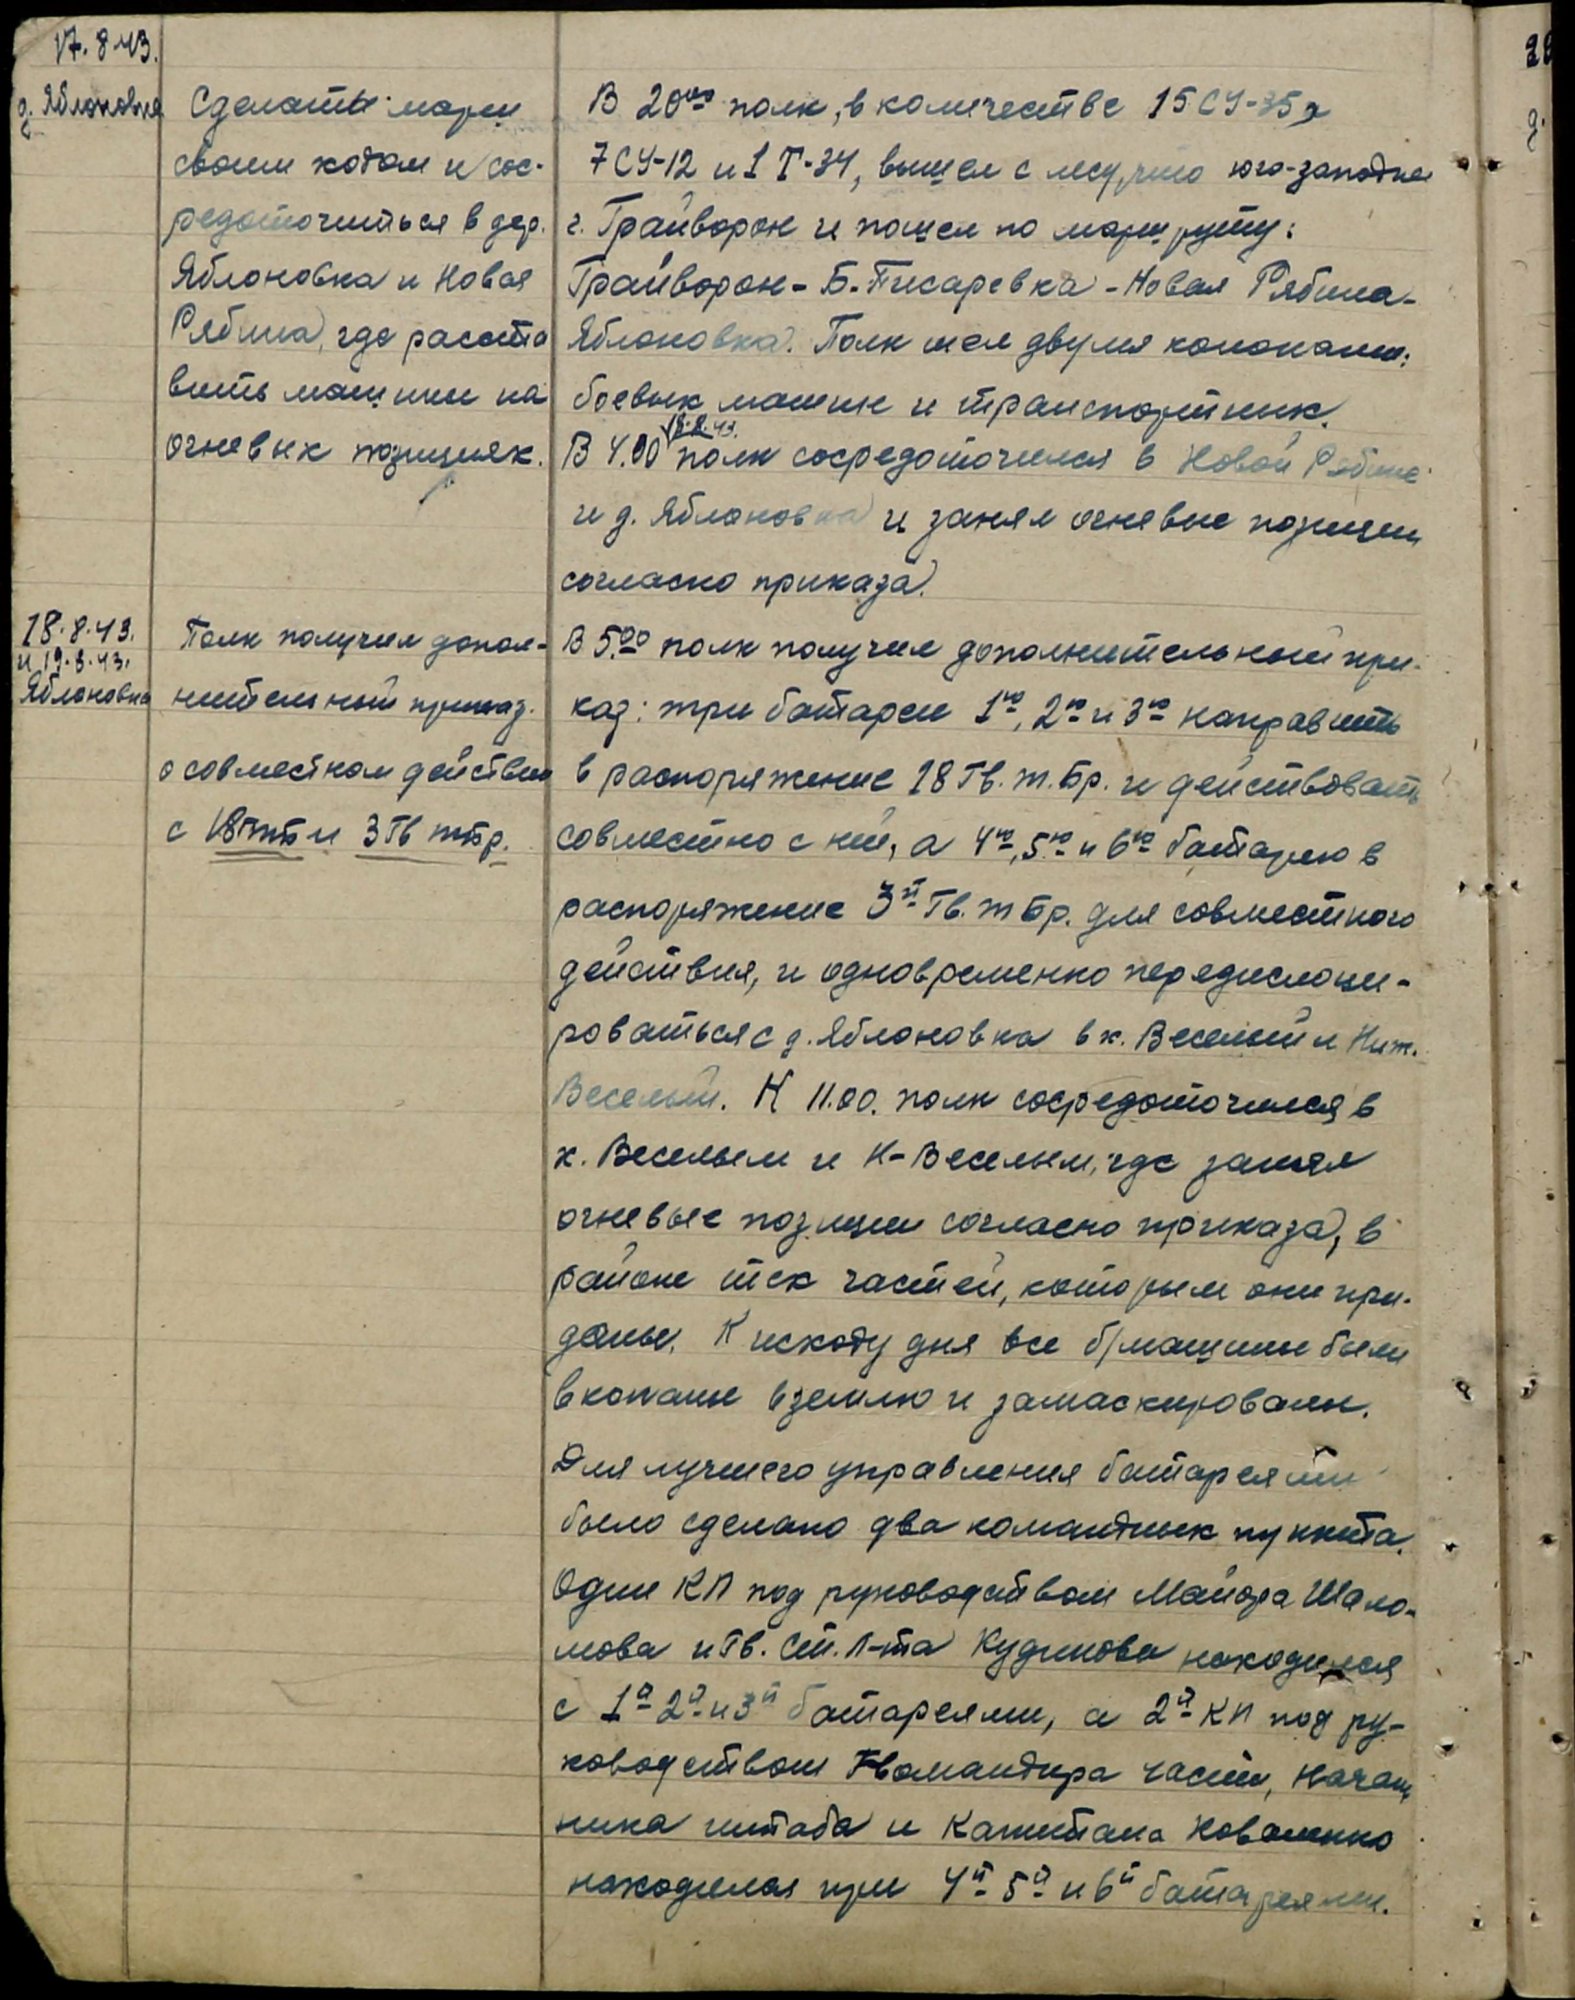 17.8.43.
д. Яблоновка
Сделать марш
своим ходом и сос-
редоточиться в дер.
Яблоновка и Новая
Рябина, где расста
вить машины на
огневых позициях.
В 20⁰⁰ полк, в количестве 15 СУ-85,
7 СУ-12 и 1 Т-34, вышел с юго-западнее
г. Грайворон и пошел по маршруту:
Грайворон - Б. Писаревка - Новая Рябина -
Яблоновка. Полк шел двумя колонами:
боевых машин и транспортных.
18.8.43.
В 4.00 полк сосредоточился в Новой Рябине
и д. Яблоновка и занял огневые позиции
согласно приказа.
18.8.43.
и 19.8.43.
Яблоновка
Полк получил допол-
нительный приказ.
о совместном действии
с 18 и 3 Гв тбр.
В 5.⁰⁰ полк получил дополнительный при-
каз: три батареи 1ю, 2ю и 3ю направить
в распоряжение 18 Гв. т. Бр. и действовать
совместно с ней, а 4ю, 5ю и 6ю батарею в
распоряжение 3й Гв. т Бр. для совместного
действия, и одновременно передислоци-
роваться с д. Яблоновка в х. Веселый и Ниж.
Веселый. К 11.00. полк сосредоточился в
х. Веселым и Н-Веселым, где занял
огневые позиции согласно приказа, в
районе тех частей, которым они при-
даны. К исходу дня все б/машины были
вкопаны в землю и замаскированы.
Для лучшего управления батареями
было сделано два командных пункта.
Один КП под руководством Майора Шало-
мова и Гв. Ст. Л-та Кудинова находился
с 1й 2й и 3й батареями, а 2й КП под ру-
ководством Командира части, Началь
ника штаба и Капитана Коваленко
находился при 4й 5й и 6й батареями.